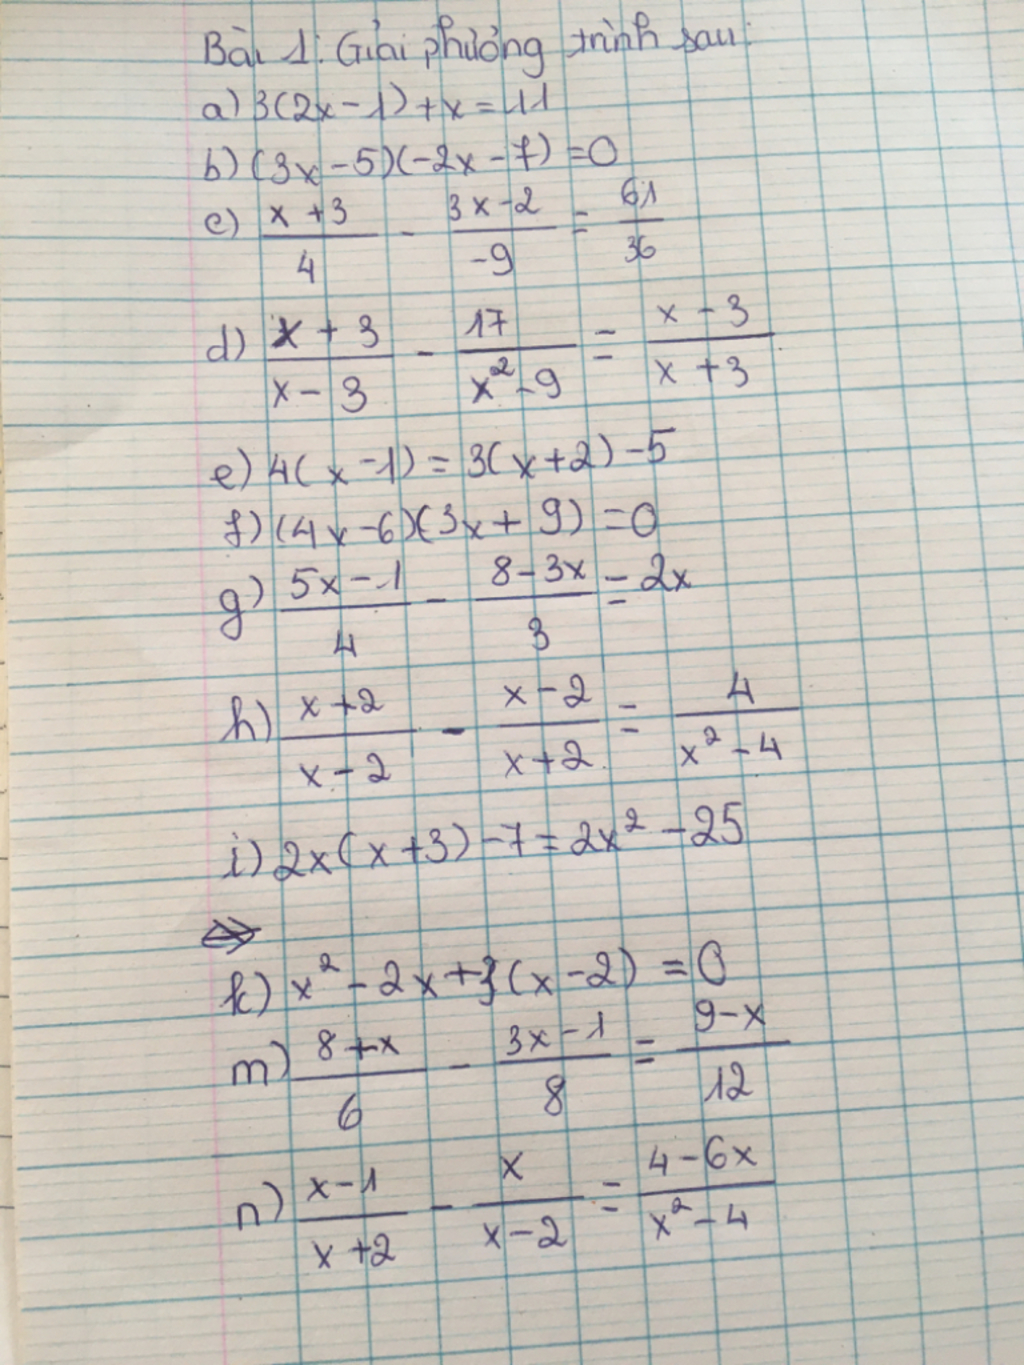 Bài 1: Giải phương trình sau:
a) 3(2x - 1) + x = 11
b) (3x - 5)(-2x - 7) = 0
c) (x + 3)/4 - (3x - 2)/-9 = 61/36
d) (x + 3)/(x - 3) - 17/(x² - 9) = (x - 3)/(x + 3)
e) 4(x - 1) = 3(x + 2) - 5
f) (4x - 6)(3x + 9) = 0
g) (5x - 1)/4 - (8 - 3x)/3 = 2x
h) (x + 2)/(x - 2) - (x - 2)/(x + 2) = 4/(x² - 4)
i) 2x(x + 3) - 7 = 2x² - 25
k) x² - 2x + 3(x - 2) = 0
m) (8 + x)/6 - (3x - 1)/8 = (9 - x)/12
n) (x - 1)/(x + 2) - x/(x - 2) = (4 - 6x)/(x² - 4)